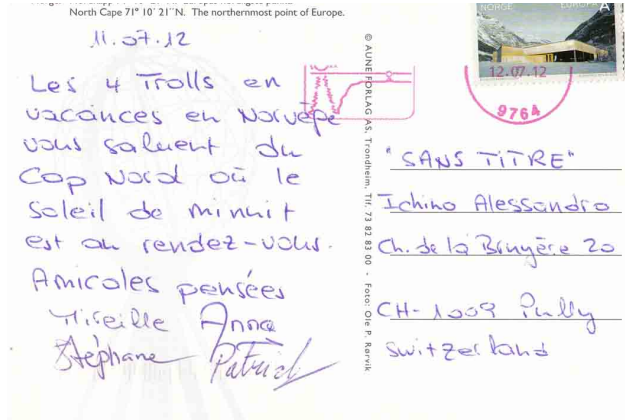 North Cape 71° 10' 21"N. The northernmost point of Europe.
11.07.12
Les 4 Trolls en
vacances en Norvège
vous saluent du
Cap Nord où le
soleil de minuit
est au rendez-vous.
Amicales pensées
Mireille Anna
Stéphane Patrick
© AUNE FORLAG AS, Trondheim, Tlf. 73 82 83 00 • Foto: Ole P. Rørvik
NORGE EUROPA A
12.07.12
9764
"SANS TITRE"
Ichino Alessandro
Ch. de la Bruyère 20
CH-1009 Pully
Switzerland